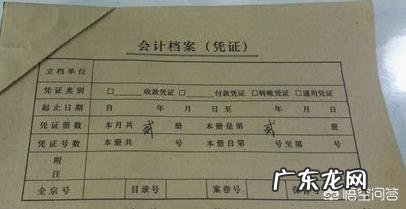 会计档案（凭证）
立档单位
凭证类别 □ 收款凭证 □ 付款凭证 □转账凭证 □通用凭证
起止日期 自 年 月 日至 年 月 日
凭证册数 本月共 贰 册 本册是第 贰 册
凭证号数 本册共 号 本册自第 号至第 号
附注
全宗号 目录号 案卷号
广东龙网
悟空问答